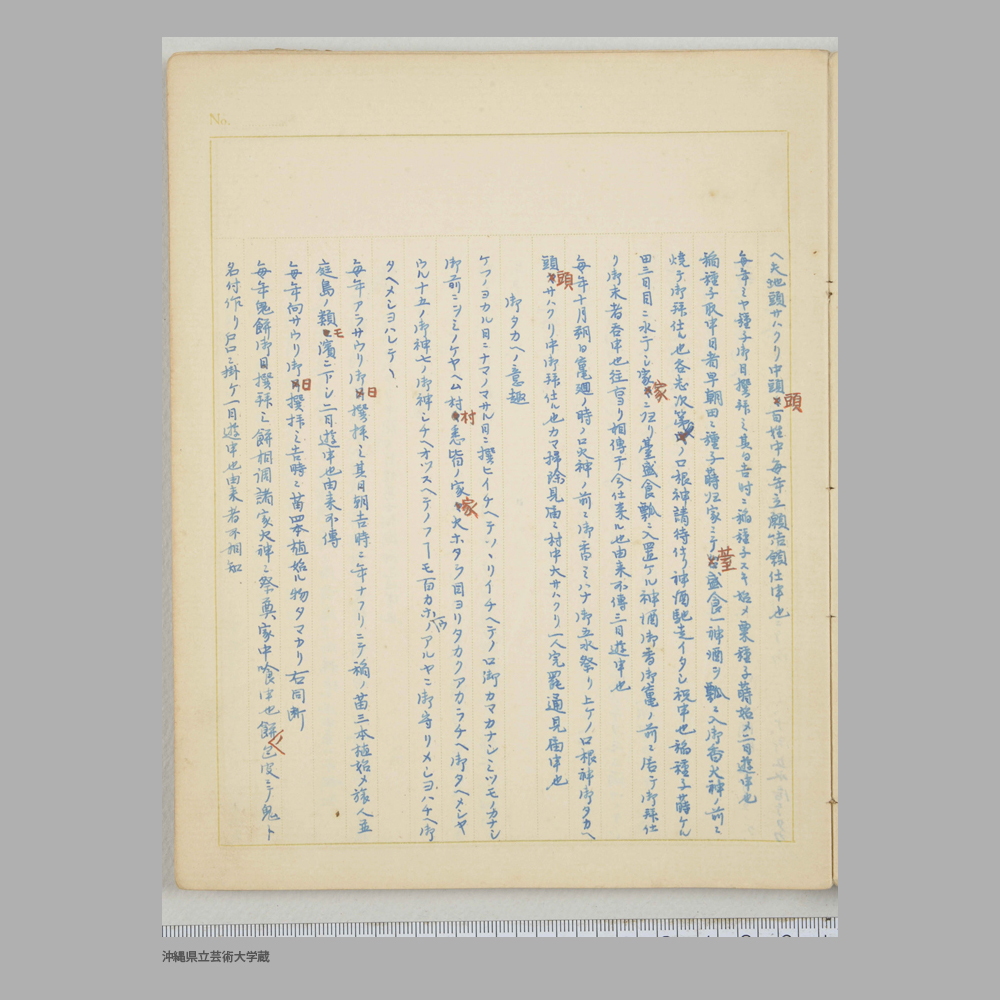 ヘ夫地頭サハクリ中頭頭百姓中毎年立願結願仕申也
毎年ミヤ種子御日撰拝ミ其日吉時ニ稲種子スキ始メ粟種子蒔始メ二日遊申也
稲種子取申日者早朝田ニ種子蒔归家ニテ台臺盛食一神酒ツ瓢ニ入御香火神ノ前ニ
焼テ御拝仕ル也各志次第ノ口根神請待仕リ神酒馳走イタシ祝申也稲種子蒔ケル
田三日目ニ水干シ家家ニ归リ臺盛食瓢ニ入置ケル神酒御香御竃ノ前ニ居テ御拝仕
リ御末者呑申也往古ヨリ相傳于今仕来ル也由来不傳三日遊申也
毎年十月朔日竃廻ノ時ノロ火神ノ前ニ御香ミハナ御五水祭リ上ケノロ根神御タカヘ
頭頭サハクリ中御拝仕ル也カマ掃除見届ニ村中大サハクリ一人完罷通見届申也
御タカヘノ意趣
ケフノヨカル日ニナマノマサル目ニ撰ヒイチヘテソソリイチヘテノロ御カマカナシミツモノカナシ
御前ニシミノケヤヘム村村悉皆ノ家家火ホタラ目ヨリタカクアカラチヘ御タヘメシヤ
ウル十五ノ御神七ノ御神シチヘオツスヘテノフーモ百カホウノアルヤニ御守リメシヨハチヘ御
タヘメシヨハレテ
毎年アラサウリ御日日撰拝ミ其日朝吉時ニ年ナフリニテ稲ノ苗三本植始メ旅人並
庭鳥ノ類モ濱ニ下シ二日遊申也由来不傳
毎年向サウリ御日日撰拝ミ吉時ニ苗四本植始ル物タマカリ右同断
毎年鬼餅御日撰拝ミ餅相調諸家火神ニ祭奠家中喰申也餅色皮ニテ鬼ト
名付作リ戸口ニ掛ケ一日遊申也由来者不相知.
No.
沖縄県立芸術大学蔵